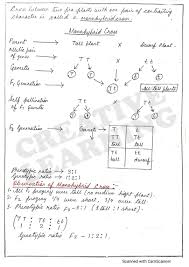 Cross between two pure plants with one pair of contrasting
character is called a monohybrid cross.
Monohybrid Cross
Parent Tall plant × Dwarf Plant
Allelic pair
of genes TT tt
Gametes T T t t
F1 Generation Tt Tt Tt Tt All tall plants
Self pollination
of F1 Gametes
F2 Generation
T t
T TT Tt
tall tall
t Tt tt
tall dwarf
Phenotypic ratio :- 3:1
Genotypic ratio :- 1:2:1
Observation of Monohybrid Cross :-
1. All F1 progeny were tall (no medium height plant)
2. F2 progeny 1/4 were short, 3/4 were tall
3. Phenotypic ratio F2 - 3:1 (3 tall : 1 short)
TT : Tt : tt
1 : 2 : 1
Genotypic ratio F2 - 1:2:1
CREATIVE
LEARNING
Scanned with CamScanner